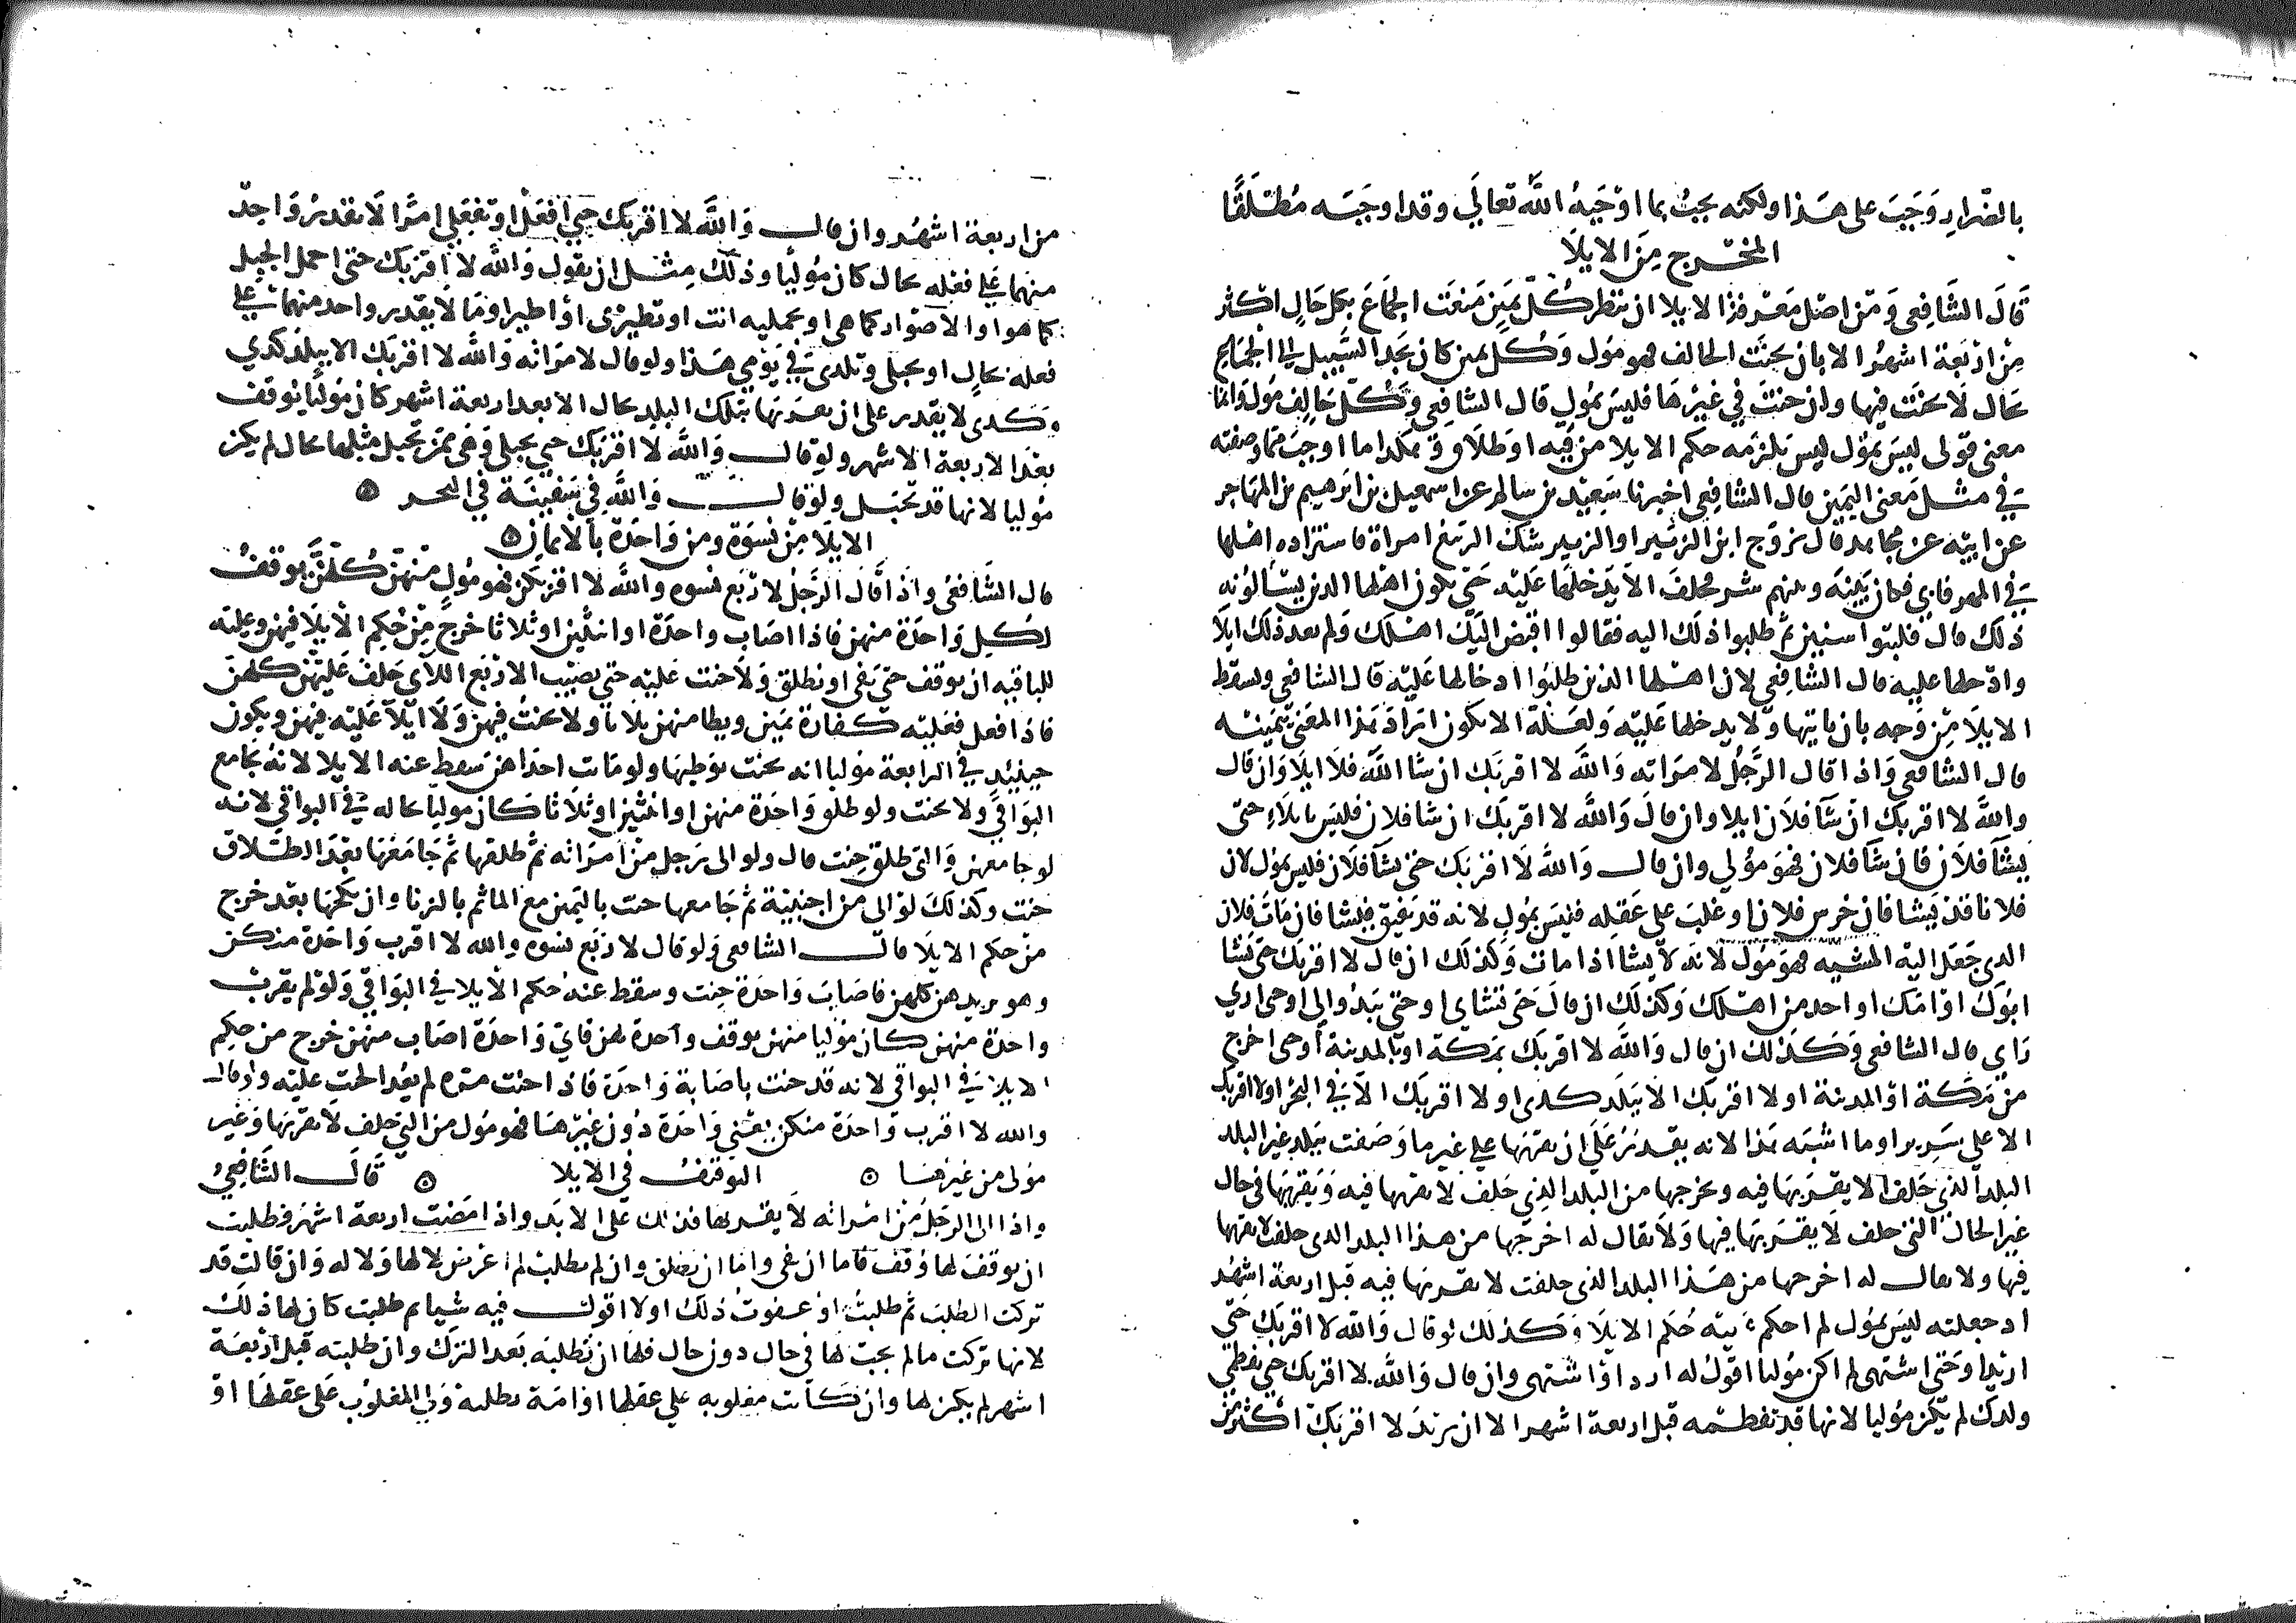 بالضرار وَجَبَ على هَذا ولكنه يجبُ بما اوْجَبَهُ اللَّه تعَالَي وقد اوجَبَه مُطْلَقًا
المَخْرج مِنَ الايلَا
قَالَ الشَّافِعِى وَمَن اصْل مَعرفة الايلا ان تنظر كُلّ يَمين مَنعَت الجِمَاعَ بكل حَالٍ اكثر
مِنْ ارْبَعة اشهُر الا بان يحنَث الحالف فهو مُول وَكُل يمين كان يَجد السَّبيل الي الجمَاع
بحَال لَا يحنَث فيها وان حنث في غَيْرهَا فليسَ بمُولٍ قال الشافِعِى وَكُلّ حَالِف مُولٍ وَانما
معنى قولى ليسَ بمُول ليس يلزمه حكم الايلا من فيه او طلَاق وهكذا ما اوجبَ مما وصفته
في مثل مَعنى اليمَين قال الشافعى اخبرنا سَعِيْد بن سالم عن اسمعيل بن ابرَهيم بن المهَاجر
عن ابيه عن مجاهد قال تزوّج ابن الزبَير او الزبير شك الربَيع امراة فاستزاده اهْلها
في المهر فابي فكان بَينه وبينهم شر فحلفَ الا يَدخلَها عَليه حَتى يكون اهلها الدين يسَالُونه
ذلك قال فلبثوا سنين ثم طلبوا ذلك اليه فقالوا اقبض اليَك اهْلك وَلم يعد ذلك ايلَا
وادخلها عليه قال الشافعي لان اهلها الذين طلبُوا ادخالها عَليه قال الشافعي ويسقط
الايلَا مِن وَجه بان ياتيها ولا يدخلها عَليه وَلعَله الا يكون ارَادَ هَذا المعَنى بيَمينه
قال الشافعي وَاذا قال الرَّجُلُ لامرَاته وَاللَّه لا اقربَك ان شا اللَّه فلَا ايلَا وَان قال
واللَّه لا اقربَك ان شَا فلَان ايلا وان قالَ وَاللَّه لا اقربَك ان شا فلان فليسَ بايلَاءِ حتى
يشَا فلاَن فان شَا فلان فهوَ مؤلي وان قال وَاللَّه لَا اقربَك حتى يشَا فلَان فليس بمؤل لان
فلانا قد يَشا فان خرس فلان او غلبَ على عَقله فليسَ بمُولٍ لانه قد يَفيق فيشا فان مَاتَ فلان
الدى جَعَل اليه المشيه فهوَ مُول لانه لا يشَا اذا مات وَكذلك ان قال لا اقربَك حتى يَشا
ابوك او امّك او احد من اهلك وكذلَك ان قالَ حَتى تشاى او حتى يَبدُوا لى او حى ارى
رَاى قال الشافعى وَكَذلك ان قال وَاللَّه لا اقربَك بمَكة او بالمدينة او حى اخرج
من مَكة اوْ المدينة او لا اقربك الا ببَلد كدى او لا اقربَك الا في البَحر او لا اقربك
الا على سَرير او ما اشبَه هَذا لانه يَقدر عَلي ان يقربَها علي غير ما وَصَفت ببَلد غير البلد
البلد الذي حَلف الا يقربَهَا فيه ويخرجها من البلد الذِي حَلف لا يقربها فيه وَيَقربَها في حال
غير الحال التى حلف لَا يقربَهَا فيها وَلَا يقال له اخرجها من هذا البلد الدى حلفت لا يقربها
فيها ولا يقال له اخرجها من هَذا البلد الذى حلفت لا يقربها فيه قبل اربعة اشهُر
اد جعلته ليسَ بمُول لم احكم عليه حُكم الايلَا وَكذلك لو قال وَاللَّه لا اقربَك حَتى
اريد او حَتى اشتهى لم اكن مُوليا اقولُ له ارد او اشتهى وان قال وَاللَّه لا اقربَك حتي تفطِمي
ولدك لم يكن مُوليا لانها قد تفطمه قبل اربعة اشهر الا ان يريدَ لا اقربَك اكثر من
من اربعة اشهُر وان قال وَاللَّه لا اقربَك حي افعَل او تفعَلي امرًا لَا يقدرُ وَاحد
منهما عَلي فعله بحال كان مُوليًا وذلكَ مِثل ان يقول وَاللَّه لا اقربك حتى احمل الجبل
كما هو او الاصْواد كما هى او تحمليه انت او تطيرى او اطير او مَا لا يَقدر واحد منهما علي
فعله بحالٍ او تحبلى وتلدى في يَومي هَذا ولو قال لامرَاته وَاللَّه لا اقربَك الا ببلد كدي
وكدى لا يقدر على ان يقربَها بتلك البلد بحال الا بعد اربعة اشهر كان مُوليًا يُوقف
بعدَ الاربعة الاشهر ولو قال وَاللَّه لا اقربَك حي تحبلى وَهى ممن تحبل مثلها بحال لم يكن
مُوليا لانها قد تحبَل ولوْ قال وَاللَّه في سَفينَة في البحر
الايلَا مِن نسوَة ومن وَاحدَة بالايمان
قال الشَافعىُ وَاذا قَال الرَّجُلُ لارْبَع نسوه واللَّه لا اقربَكن فهو مُولٍ مِنهن كُلهنَّ يوقفُ
لكل وَاحدَة منهن فاذا اصَاب واحدَة او اثنَتين او ثلاثا خرج مِن حكم الايلَا فيهن وعَليه
للباقيه ان يوقف حتى يَفى او يطلق وَلَا حنث عَليه حتى يصيب الاربَع اللاَى حَلفَ عَليهن كلهن
فاذا فعل فعَليه كفارة يمَين ويطا منهن ثلاثا ولا يحنثُ فيهن وَلَا ايلَا عَليه فيهن ويكون
حِينئِد في الرابعة مُوليا انه يحنث بوَطيها ولو مَات احدَاهن سَقط عنه الايلا لانهُ يجامع
البَواقي ولا يحنث ولو طلق وَاحدَة منهن او اثنتين او ثلَاثا كان مولياً بحاله في البواقي لانه
لو جامعهن وَالتى طلق حِنث قال ولو الى رَجل من امرَاته ثم طلقها ثم جَامَعَهَا بَعدَ الطلَاق
حنث وكذلكَ لوْ الى من اجنبيّة ثم جَامعها حنث باليَمين مع الماثم بالزنا وان نكحَهَا بعَد خرج
من حكم الايلَا قال الشافعى وَلو قال لارَبَع نسوه والله لا اقرب وَاحدَة منكن
وهو يريدهن كلهن فاصَابَ وَاحدَة حِنث وسقط عنهُ حُكم الايلا في البَواقي وَلوْ لم يقرَبْ
واحدة منهن كان مُوليا منهن يوقف واحدة لهن فايّ وَاحدَة اصَاب منهن خرج من حكِم
الايلا في البواقى لانه قد حنث باصَابة وَاحدَة فاذا حنث مره لم يعُد الحنث عليه وان قال
والله لا اقرب وَاحدَة منكن يعنى وَاحدَة دُون غيَرهَا فهو مُول من التي حلف لَا يقربَهَا وَغير
مُولى من غيَرها التَوقفُ في الايلا قَالَ الشَّافِعِيُ
واذا الى الرجَل من امرَاته لَا يقربها فذلك عَلى الابَد واذا مَضت اربعة اشهُر فطلبت
ان يوقفَ لها وُقفَ فاما ان يفى واما ان يطلق وان لم تطلبْ لم اعرض لا لها وَلا له وَان قالت قد
تركت الطلبَ ثم طلبتُ او عفوتُ ذلك او لا اقول فيه شيا ثم طلبت كان لها ذلك
لانها تركت ما لم يجبْ لها في حال دون حال فلها ان تطلبَه بَعد التركَ وان طلبته قبل ارْبعَة
اشهر لم يكن لها وان كَانت مغلوبه علي عقلها او امَة يطلبه وَلي المغلُوب عَلى عَقلهَا اوْ